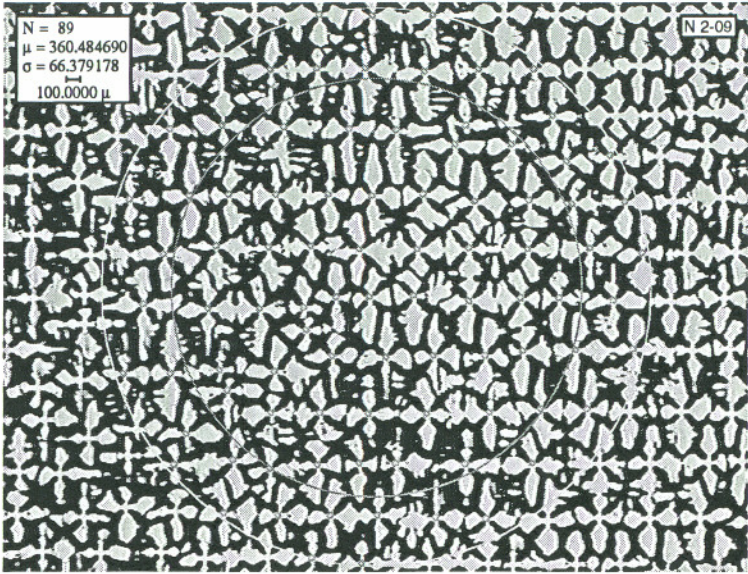 N = 89
μ = 360.484690
σ = 66.379178
100.0000 μ
N 2-09